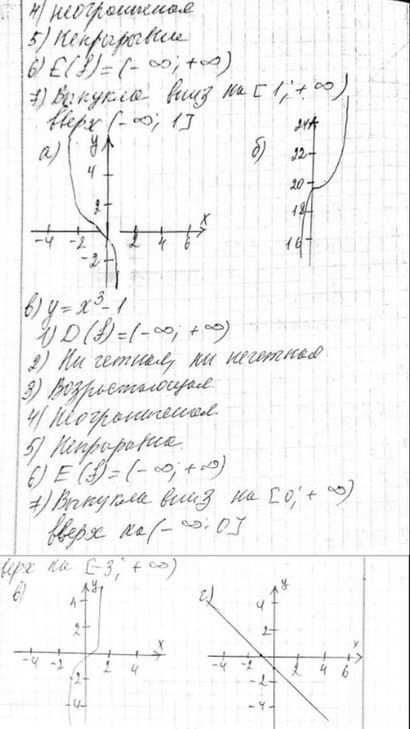 4) неограниченая
5) Непрырывна
6) E(f)=(-∞; +∞)
7) Выпукла вниз на [1; +∞)
вверх (-∞; 1]
а) y 4 2 -4 -2 2 4 6 x -2
б) 24 22 20 18 16
в) y = x³-1
1) D(f)=(-∞; +∞)
2) Ни четная, ни нечетная
3) Возростающая
4) Неограниченая
5) Непрырвна
6) E(f)=(-∞; +∞)
7) Выпукла вниз на [0; +∞)
вверх на (-∞; 0]
верх на [-3; +∞)
в) y 4 2 -4 -2 2 4 x -2 -4
г) y 4 2 -4 -2 2 4 6 x -2 -4